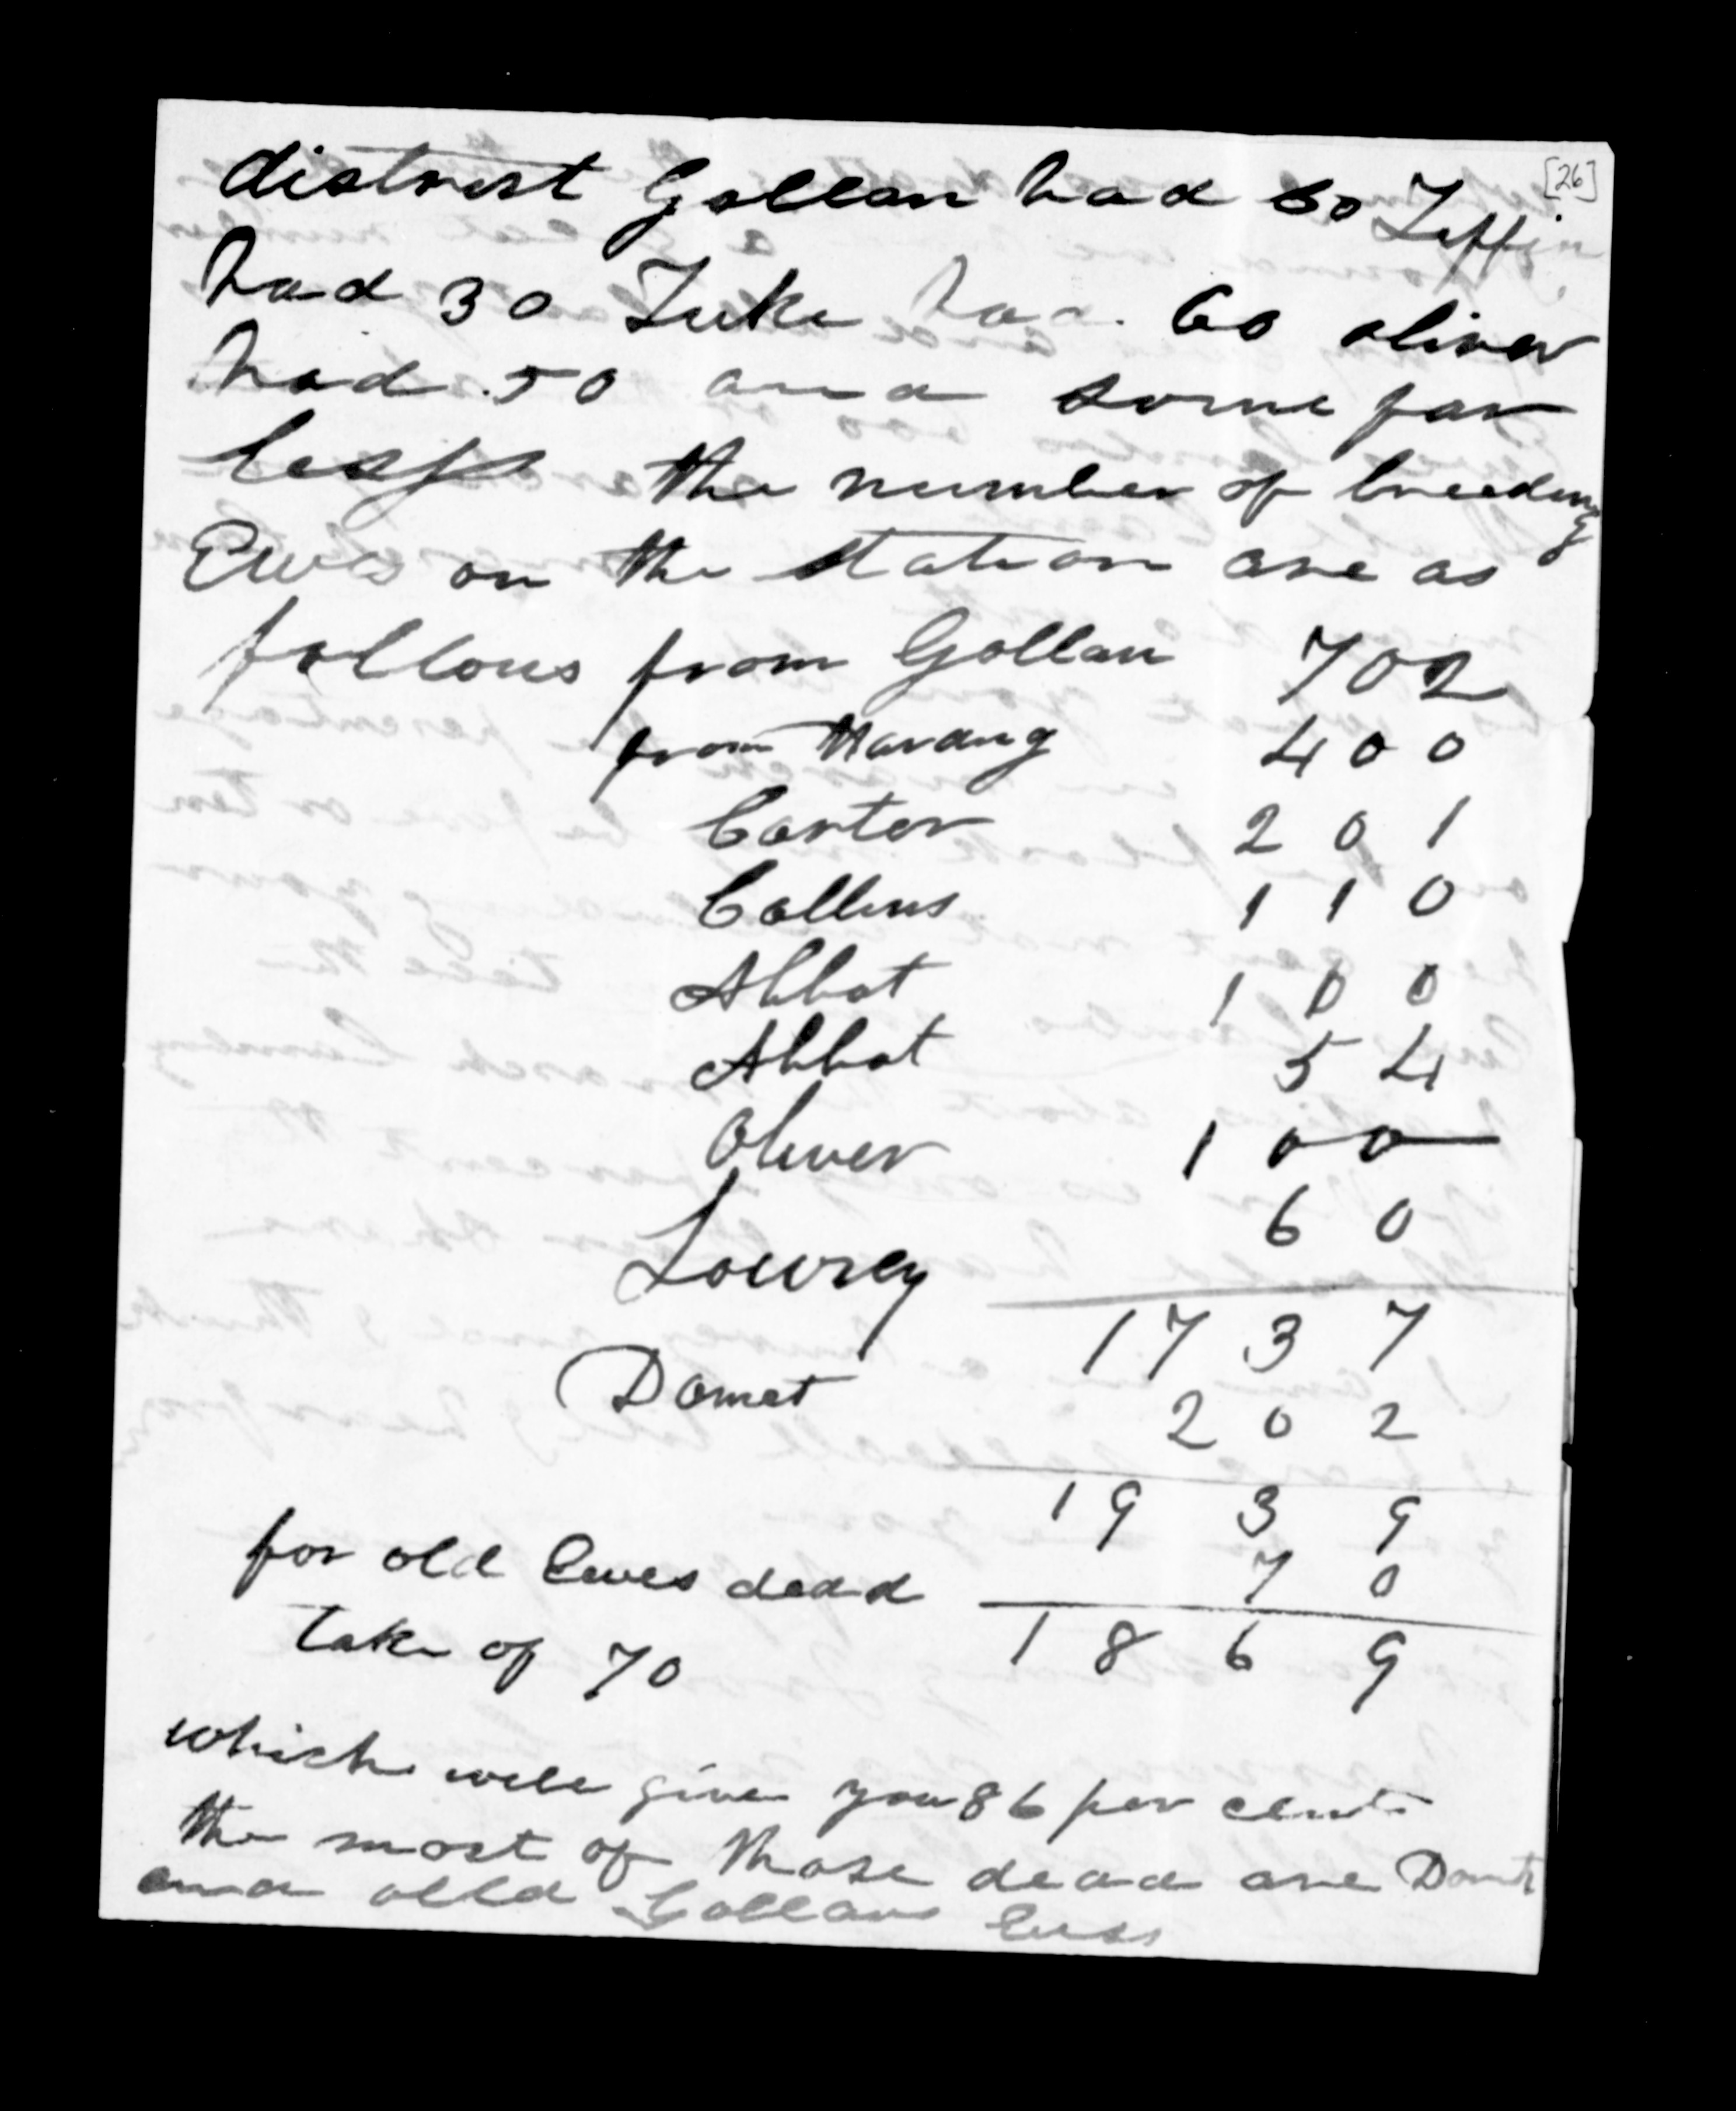 [26]
district Gollan had 60 Tiffin
had 30 Tuke had 60 oliver
had 50 and some far
less the number of breeding
Ewes on the station are as
follows from Gollan 702
from Marang 400
Carter 201
Collins 110
Abbot 100
Abbot 54
Oliver 100
Lowrey 60
1737
Domet 202
1939
for old Ewes dead 70
take of 70 1869
which will give you 86 per cent
the most of those dead are Domets
and olld Gollans Ewes